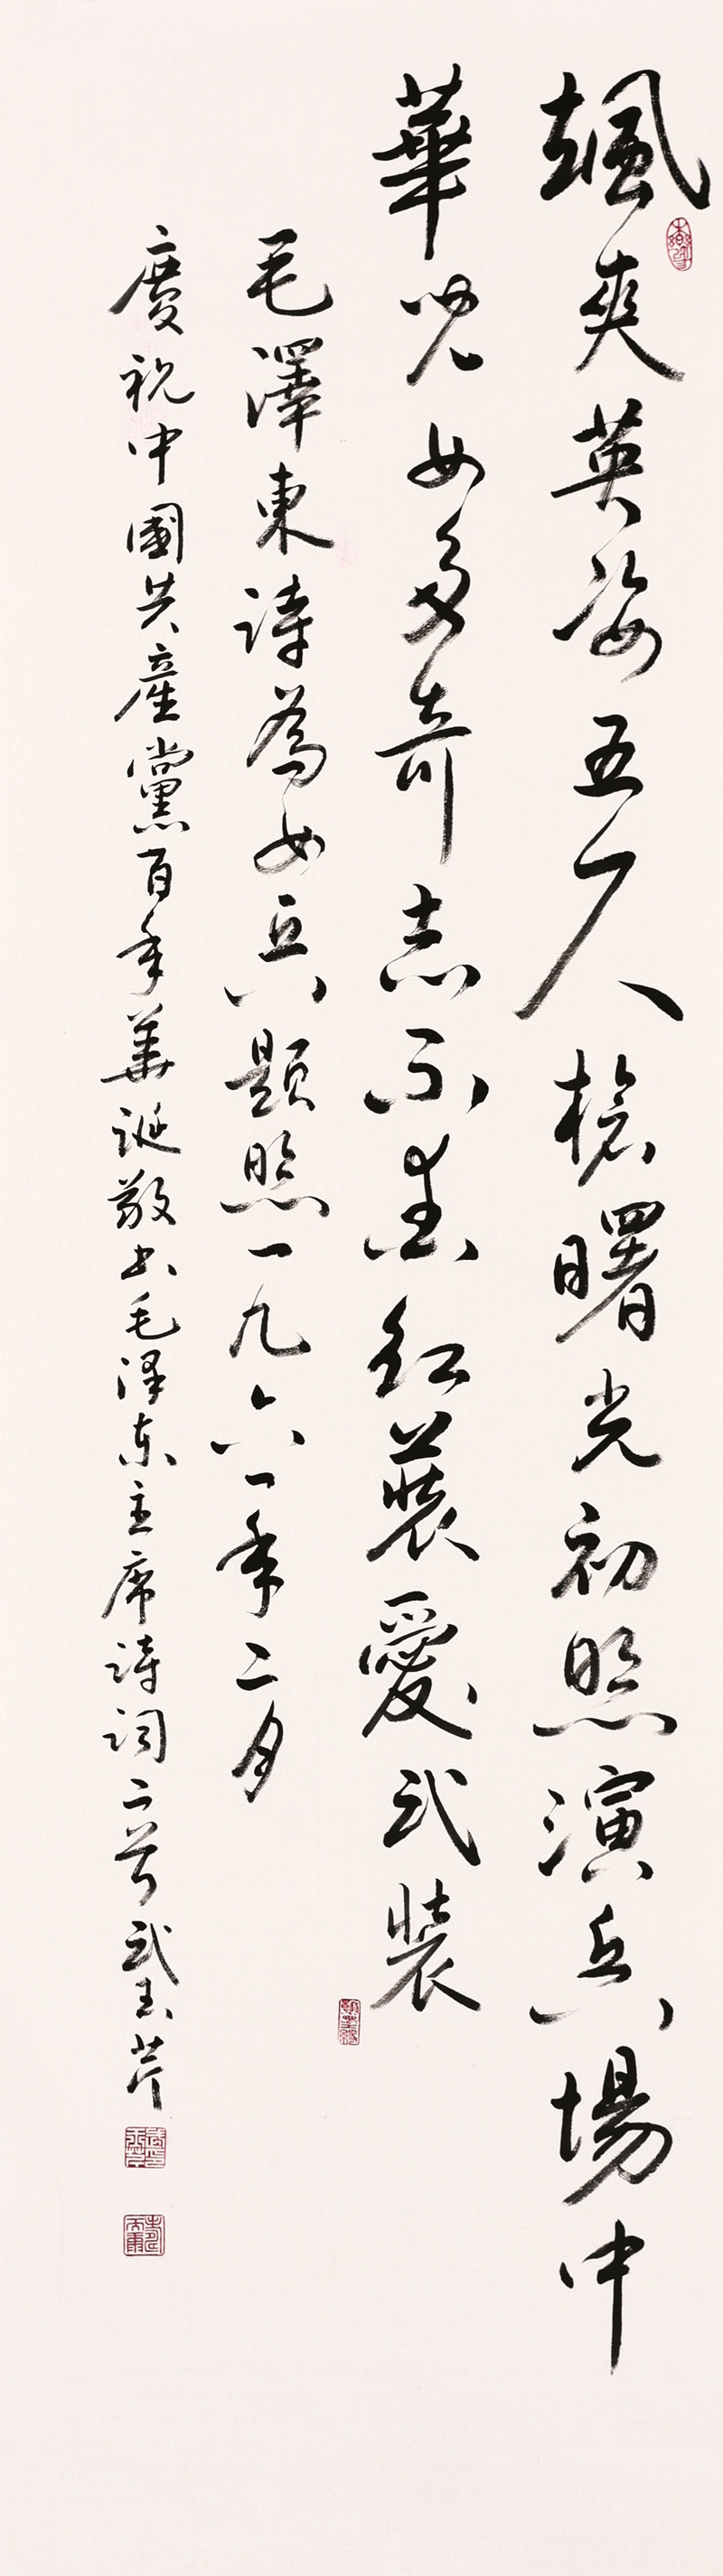 颯爽英姿五尺槍曙光初照演兵場中
華兒女多奇志不愛紅裝愛武裝
毛澤東詩為女兵題照一九六一年二月
慶祝中國共產黨百年華誕敬书毛泽东主席詩詞二首武玉芹